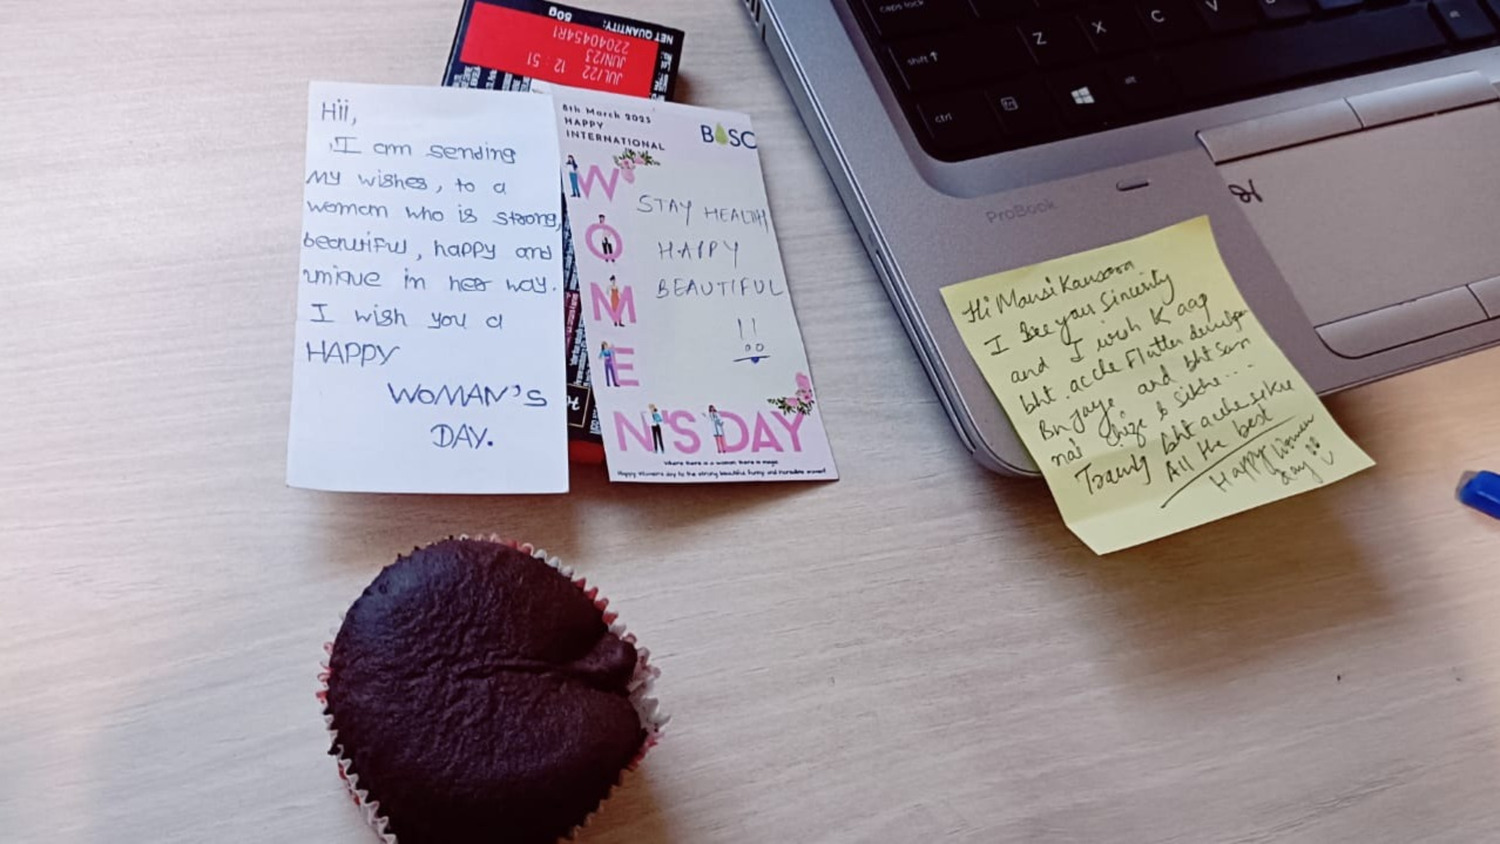 NET QUANTITY:
80g
22040454R1
JUN/23
JUL/22 12:51
Hii,
I am sending
my wishes, to a
woman who is strong,
beautiful, happy and
unique in her way.
I wish you a
HAPPY
WOMAN'S
DAY.
8th March 2023
HAPPY
INTERNATIONAL
BOSC
WOMEN'S DAY
STAY HEALTHY
HAPPY
BEAUTIFUL
!!
Where there is a woman there is magic
Happy Women's day to the strong beautiful funny and incredible women!
caps lock
shift
Z X C V
ctrl
fn
ProBook
Hi Mansi Kansara
I See your Sincerity
and I wish K aap
bht acche Flutter developer
Bn jaye and bht sari
nai chize b sikhe...
bht acche se
All the best
Happy Women
day